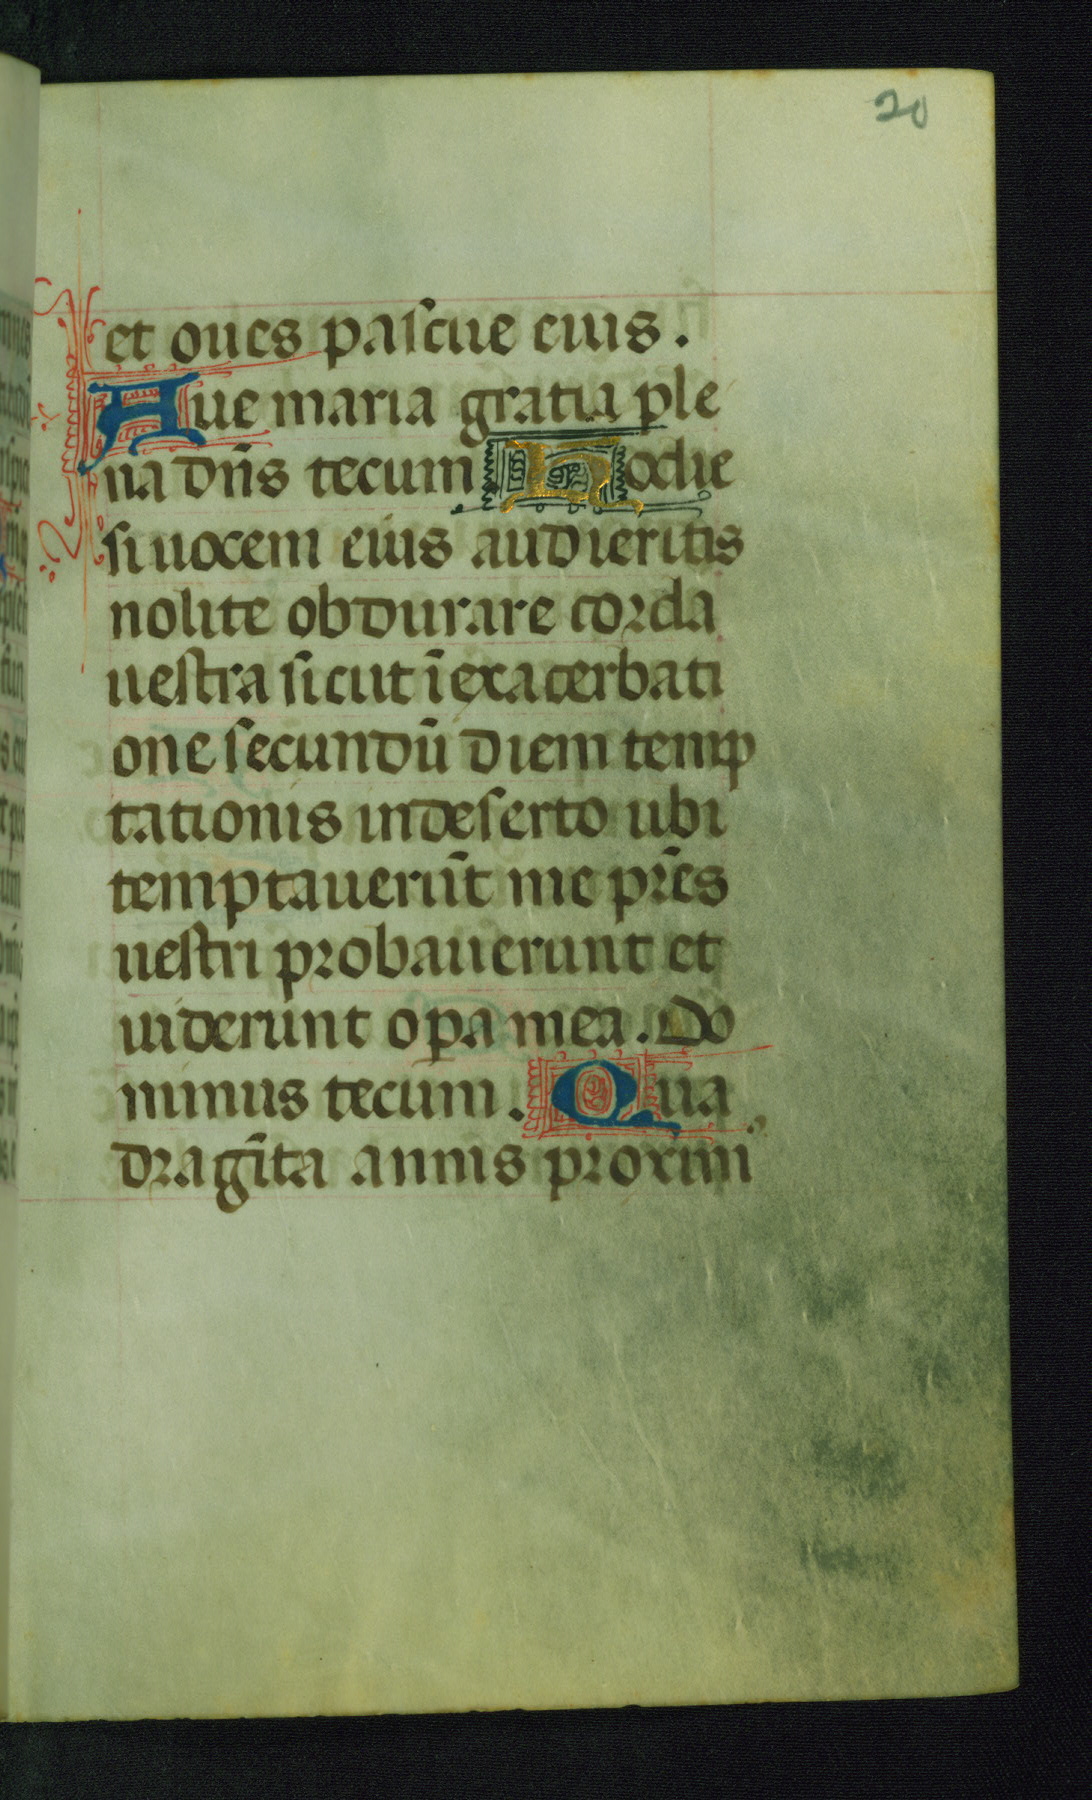 20
et oues pascue eius.
Aue maria gratia ple
na dn̄s tecum Hodie
si uocem eius audieritis
nolite obdurare corda
uestra sicut ī exacerbati
one secundū diem temp
tationis in deserto ubi
temptauerūt me pr̄es
uestri probauerunt et
uiderunt oꝑa mea. Do
minus tecum. Qua
dragīta annis proximi